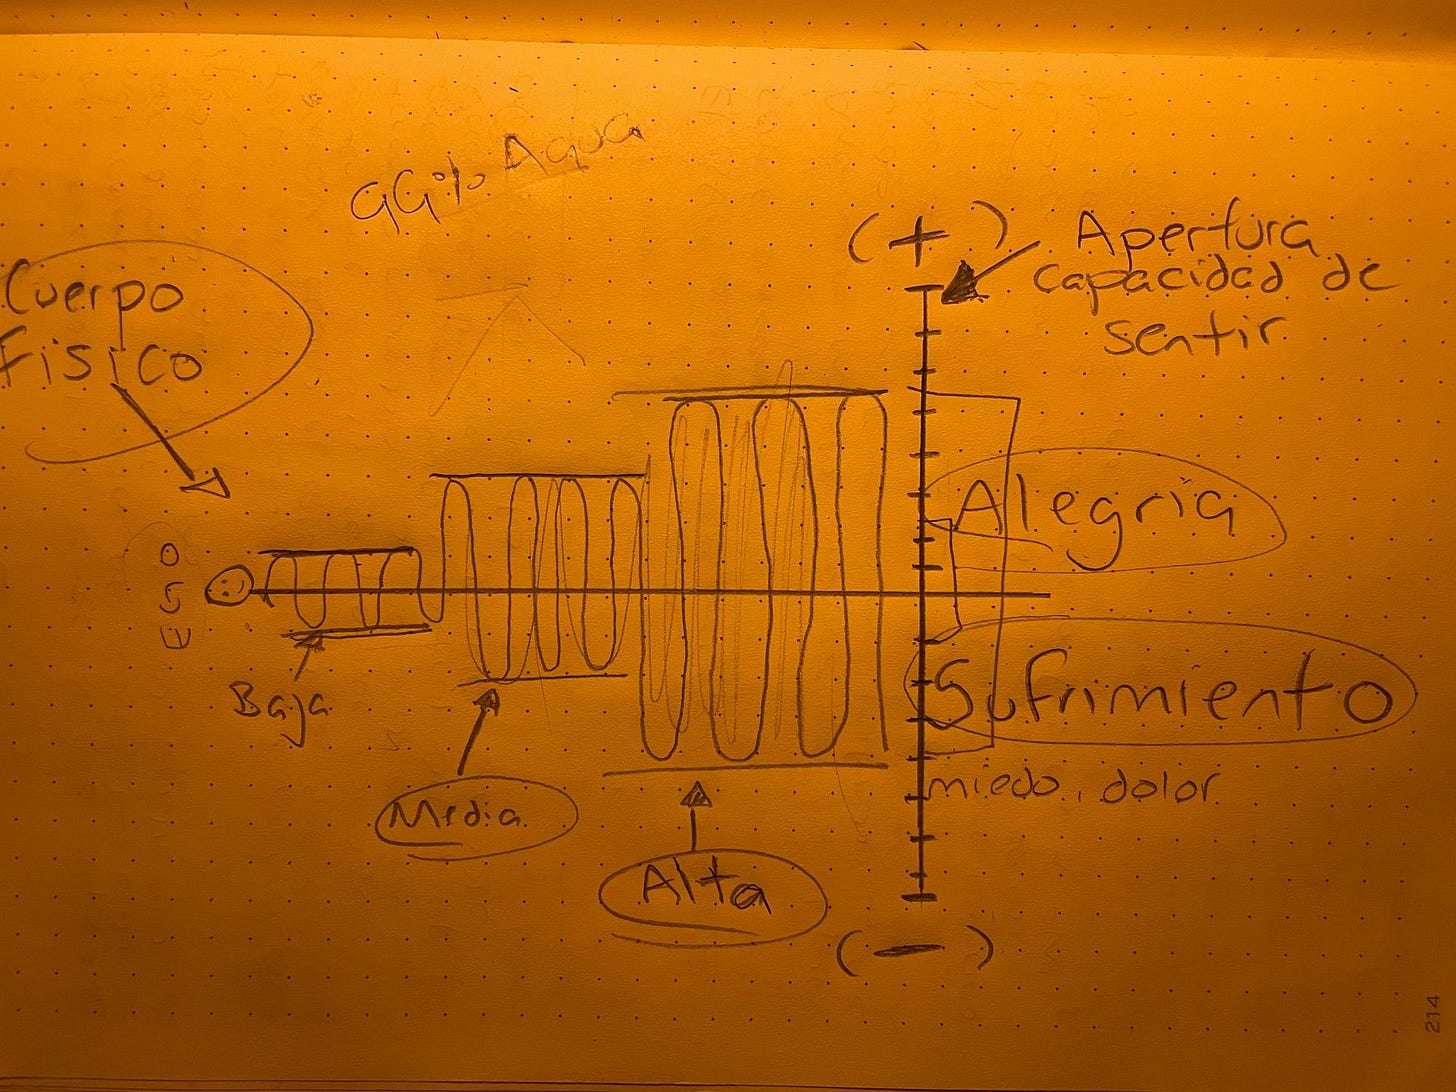 99% Agua
Cuerpo
Físico
(+)
Apertura
capacidad de
sentir
Alegría
Baja
Sufrimiento
Media
miedo, dolor
Alta
(-)
214